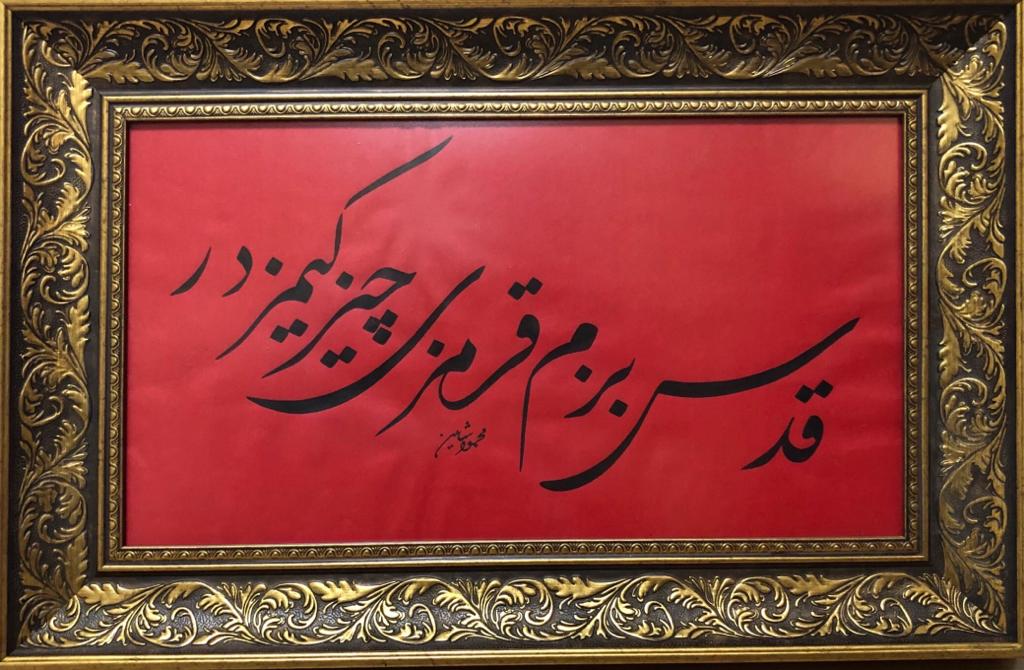 قدس بزم قرمزی چیزكیمزدر
محمود شاهین